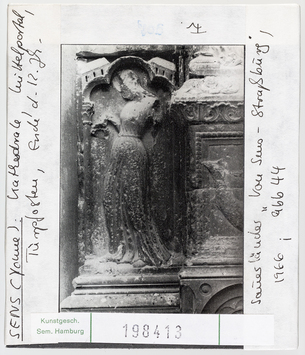 SENS (Yonne): Kathedrale Mittelportal,
Türpfosten, Ende d. 12. Jh.
7
Kunstgesch.
Sem. Hamburg
198413
Sauerländer „Von Sens - Straßburg",
1966; Abb 44